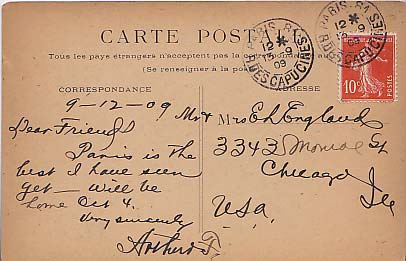 CARTE POSTALE
Tous les pays étrangers n'acceptent pas la correspondance au
(Se renseigner à la poste)
CORRESPONDANCE
ADRESSE
9-12-09
Dear Friends
Paris is the
best I have seen
yet - will be
home Oct 4.
Very sincerely
Arthur
Mr & Mrs E h England
3343 Monroe St
Chicago
Ill
USA.
PARIS
12 * 9
09
R. DES CAPUCINES
PARIS
12 * 9
09
R. DES CAPUCINES
10c
POSTES